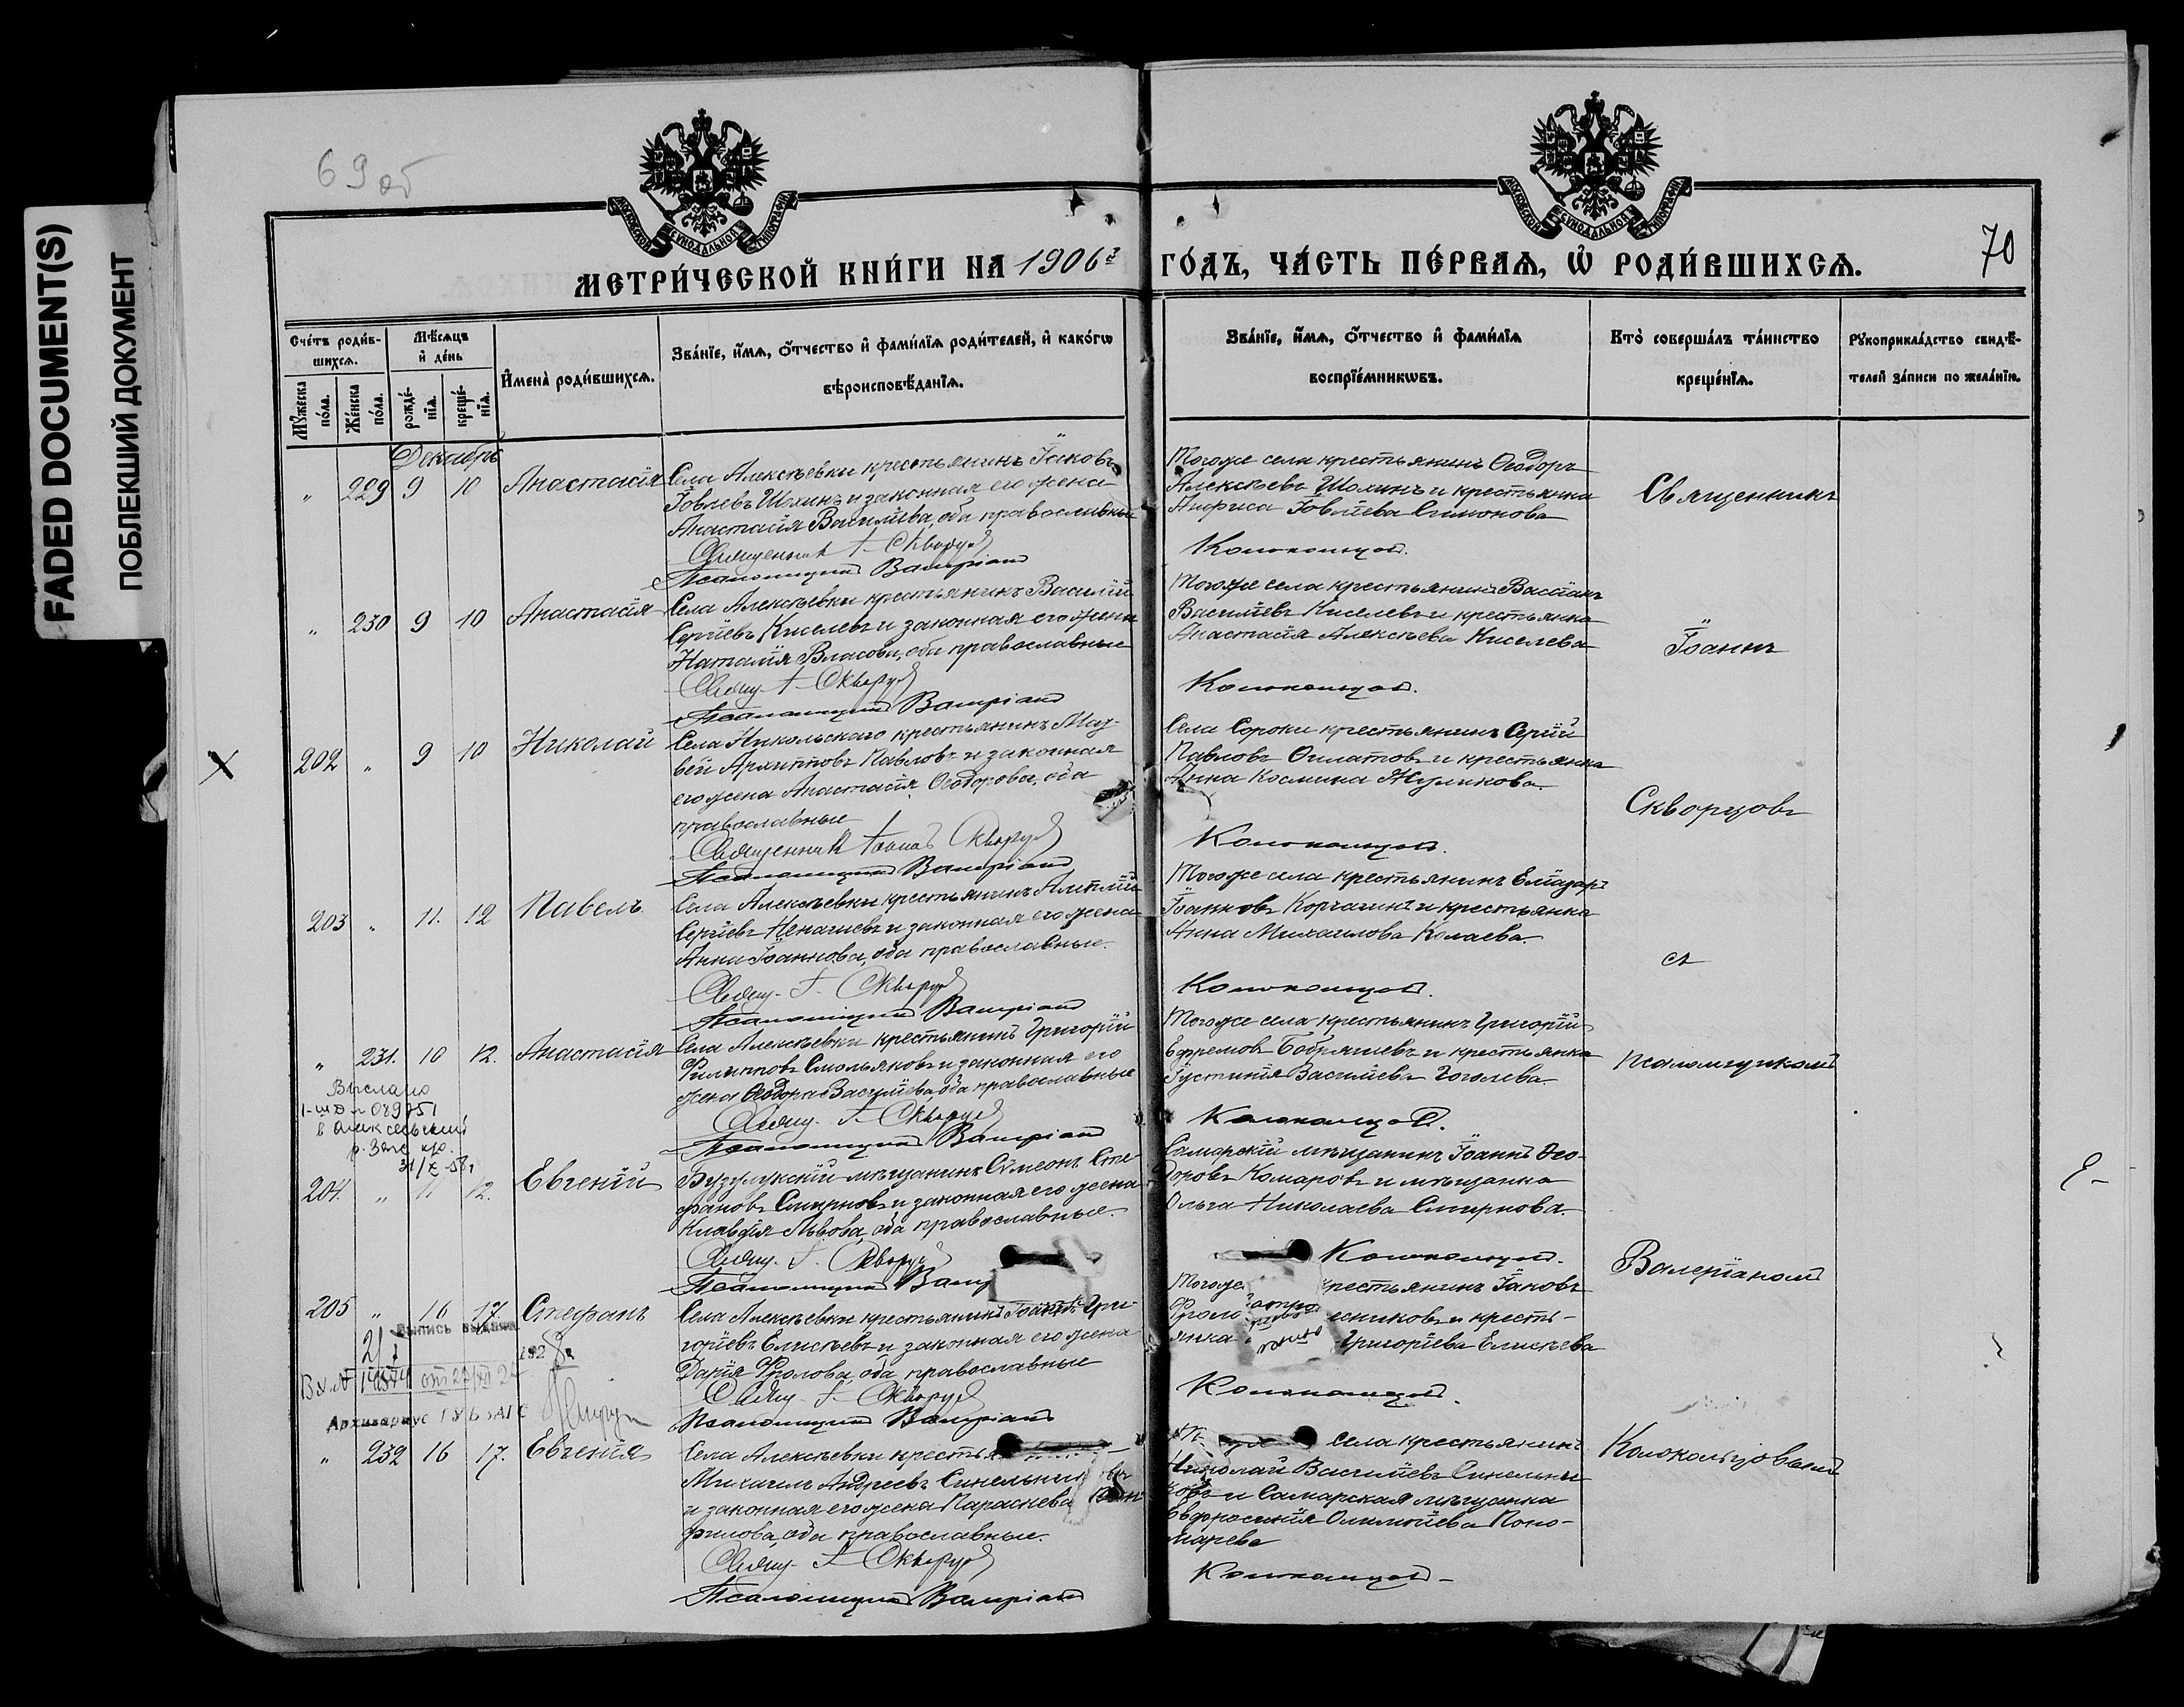 FADED DOCUMENT(S)
ПОБЛЕКШИЙ ДОКУМЕНТ
69 об
МЕТРИ́ЧЕСКОЙ КНИ́ГИ НА 1906 й ГО́ДЪ, ЧА́СТЬ ПЕ́РВАѦ, Ѡ РОДИ́ВШИХСѦ.
70
Сче́тъ роди́в-
шихсѧ.
Мꙋ́жеска по́ла.
Же́нска по́ла.
Мѣ́сѧцъ
и де́нь
рожде́нїѧ.
креще́нїѧ.
Имена̀ роди́вшихсѧ.
Зва́нїе, и́мѧ, ѻ́тчество и фами́лїѧ роди́телей, и како́гѡ
вѣроисповѣ́данїѧ.
Зва́нїе, и́мѧ, ѻ́тчество и фами́лїѧ
воспрїе́мникѡвъ.
Кто̀ соверша́лъ та́инство
креще́нїѧ.
Рꙋкоприкла́дство свидѣ́-
телей за́писи по жела́нїю.
Декабрь
" 229 9 10 Анастасія
Села Алексѣевки крестьянинъ Іаковъ
Іовлевъ Шохинъ и законная его жена
Анастасія Василіева, оба православные
Священник І. Скворцов
Псаломщик Валеріан
Тогоже села крестьянинъ Ѳеодоръ
Алексѣевъ Шохинъ и крестьянка
Анфиса Іовлева Симонова
Колокольцов.
" 230 9 10 Анастасія
Села Алексѣевки крестьянинъ Василій
Сергіевъ Киселевъ и законная его жена
Наталія Власова, оба православные
Свящ. І. Скворцов
Псаломщик Валеріан
Тогоже села крестьянинъ Вассіанъ
Василіевъ Киселевъ и крестьянка
Анастасія Алексѣева Киселева
Колокольцов.
Х
202 " 9 10 Николай
Села Никольскаго крестьянинъ
Архиповъ Павловъ и законная
его жена Анастасія Ѳеодорова, оба
православные
Священник Іоанн Скворцов
Псаломщик Валеріан
Села Сороки крестьянинъ Сергій
Павловъ Филатовъ и крестьянка
Анна Космина Жуликова
Колокольцов.
203 " 11. 12 Павелъ
Села Алексѣевки крестьянинъ
Сергіевъ Ненашевъ и законная его жена
Анна Іоаннова, оба православные.
Свящ. І. Скворцов
Псаломщик Валеріан
Тогоже села крестьянинъ Еліазаръ
Іоанновъ Корчагинъ и крестьянка
Анна Михаилова Колаева
Колокольцов.
" 231. 10 12. Анастасія
Села Алексѣевки крестьянинъ Григорій
Филипповъ Смольяковъ и законная его
жена Ѳеодора Василіева, оба православные
Свящ. І. Скворцов
Псаломщик Валеріан
Тогоже села крестьянинъ Григорій
Ефремовъ Бобряшевъ и крестьянка
Іустинія Василіева Гоголева
Колокольцов.
Выслано
в Алексеевский
р. загс
204. " 11 12. Евгеній
Бузулукскій мѣщанинъ Сѵмеонъ Сте-
фановъ Смирновъ и законная его жена
Клавдія Львова, оба православные.
Свящ. І. Скворцов
Псаломщик
Самарскій мѣщанинъ Іоаннъ Ѳео-
доровъ Комаровъ и мѣщанка
Ольга Николаева Смирнова.
Колокольцов.
205 " 16 17. Стефанъ
Села Алексѣевки крестьянинъ Іоаннъ Гри-
горіевъ Елисѣевъ и законная его жена
Дарія Фролова, оба православные
Свящ. І. Скворцов
Псаломщик Валеріан
Тогоже крестьянинъ Іаковъ
Фроло есниковъ и кресть-
янка Григоріева Елисѣева
Колокольцов.
Выпись выдана
1928
Вх. №
Архивариус ГУБЗАГС
" 232 16 17. Евгенія
Села Алексѣевки кресть
Михаилъ Андреевъ Синельниковъ
и законная его жена Параскева
филова, оба православные.
Свящ. І. Скворцов
Псаломщик Валеріан
села крестьянинъ
Николай Василіевъ Синельни-
ковъ и Самарская мѣщанка
Евфросинія Олимпіева Поно-
марева
Колокольцов
Священникъ
Іоаннъ
Скворцовъ
съ
псаломщикомъ
Валеріаномъ
Колокольцовымъ